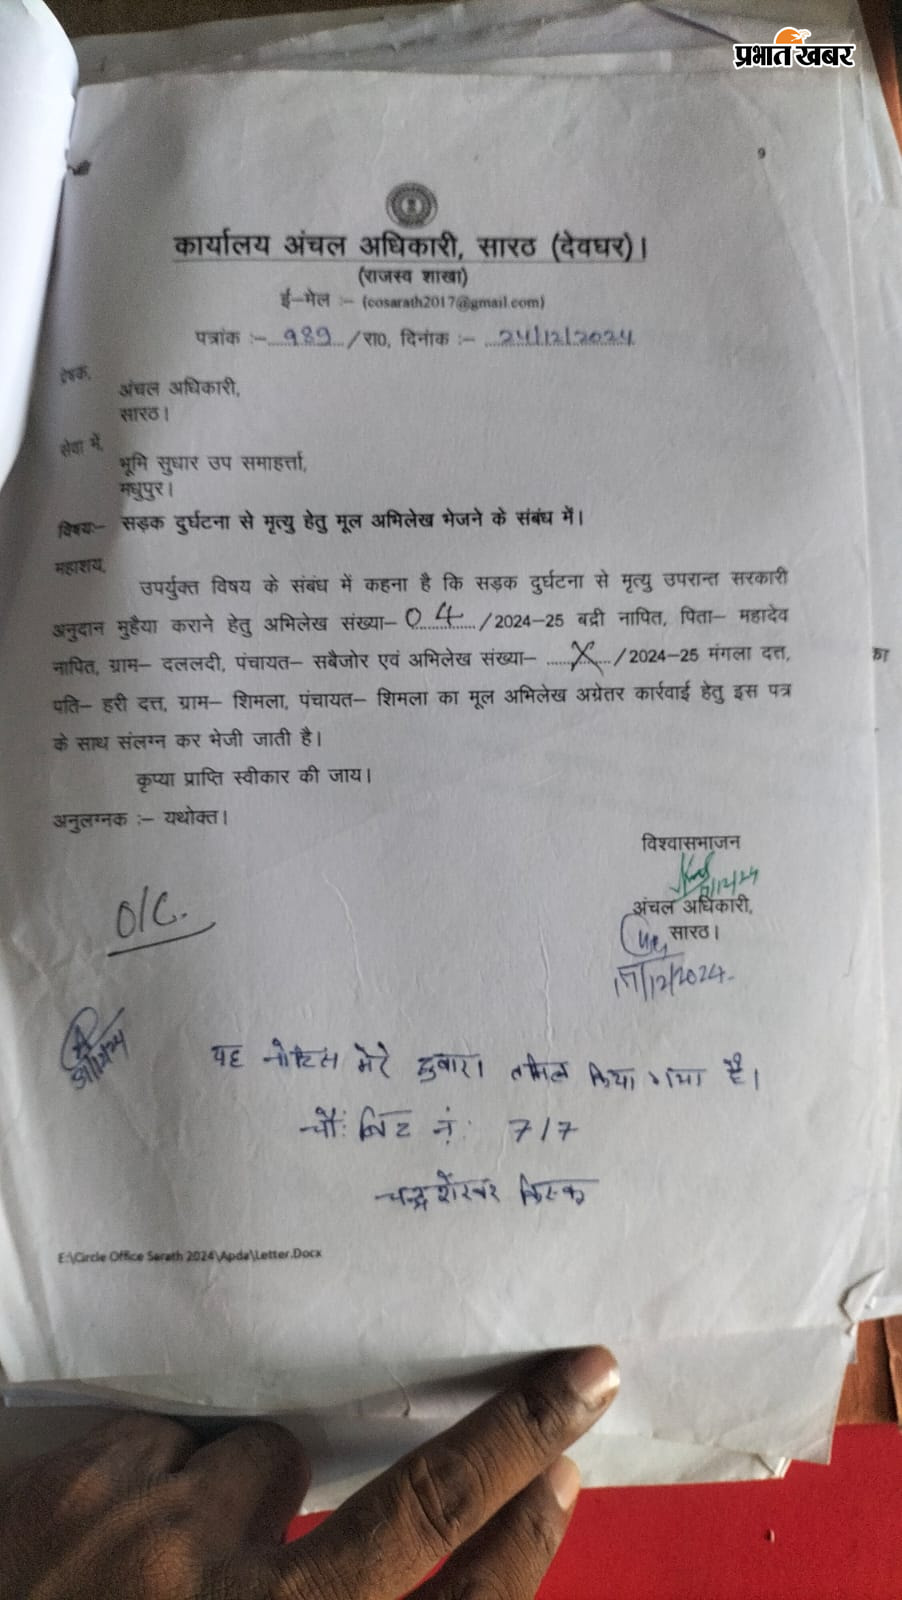 प्रभात खबर
9
कार्यालय अंचल अधिकारी, सारठ (देवघर)।
(राजस्व शाखा)
ई–मेल :– (cosarath2017@gmail.com)
पत्रांक :– 989 /रा0, दिनांक :– 24/12/2024
प्रेषक,
अंचल अधिकारी,
सारठ।
सेवा में,
भूमि सुधार उप समाहर्त्ता,
मधुपुर।
विषयः– सड़क दुर्घटना से मृत्यु हेतु मूल अभिलेख भेजने के संबंध में।
महाशय,
उपर्युक्त विषय के संबंध में कहना है कि सड़क दुर्घटना से मृत्यु उपरान्त सरकारी
अनुदान मुहैया कराने हेतु अभिलेख संख्या– 04 /2024–25 बद्री नापित, पिता– महादेव
नापित, ग्राम– दललदी, पंचायत– सबैजोर एवं अभिलेख संख्या– X /2024–25 मंगला दत्त,
का
पति– हरी दत्त, ग्राम– शिमला, पंचायत– शिमला का मूल अभिलेख अग्रेतर कार्रवाई हेतु इस पत्र
के साथ संलग्न कर भेजी जाती है।
कृप्या प्राप्ति स्वीकार की जाय।
अनुलग्नक :– यथोक्त।
विश्वासभाजन
अंचल अधिकारी,
सारठ।
O/C.
/12/2024
यह नोटिस मेरे दुवारा तमिल किया गया है।
चौ: बिट नं: 7/7
चन्द्रशेखर किस्कू
E:\Circle Office Sarath 2024\Apda\Letter.Docx